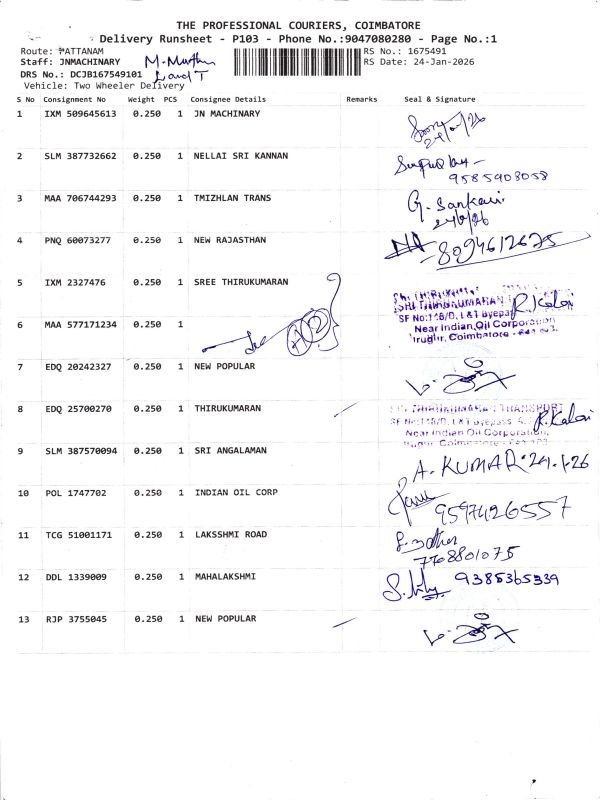 THE PROFESSIONAL COURIERS, COIMBATORE
Delivery Runsheet - P103 - Phone No.:9047080280 - Page No.:1
Route: PATTANAM RS No.: 1675491
Staff: JNMACHINARY RS Date: 24-Jan-2026
DRS No.: DCJB167549101 L and T
Vehicle: Two Wheeler Delivery
S No Consignment No Weight PCS Consignee Details Remarks Seal & Signature
1 IXM 509645613 0.250 1 JN MACHINARY
2 SLM 387732662 0.250 1 NELLAI SRI KANNAN
9585908058
3 MAA 706744293 0.250 1 TMIZHLAN TRANS G. Sankari
4 PNQ 60073277 0.250 1 NEW RAJASTHAN 8094612675
5 IXM 2327476 0.250 1 SREE THIRUKUMARAN
SRI THIRUKUMARAN R. Kalai
SF No:148/D, L&T Byepass
6 MAA 577171234 0.250 1 Near Indian Oil Corporation
Irugur, Coimbatore
7 EDQ 20242327 0.250 1 NEW POPULAR
8 EDQ 25700270 0.250 1 THIRUKUMARAN SRI THIRUKUMARAN TRANSPORT
SF No:148/D, L&T Byepass R. Kalai
Near Indian Oil Corporation,
Irugur Coimbatore
9 SLM 387570094 0.250 1 SRI ANGALAMAN A. KUMAR 24.1.26
10 POL 1747702 0.250 1 INDIAN OIL CORP
9597426557
11 TCG 51001171 0.250 1 LAKSSHMI ROAD
7708801075
12 DDL 1339009 0.250 1 MAHALAKSHMI 9385365339
13 RJP 3755045 0.250 1 NEW POPULAR